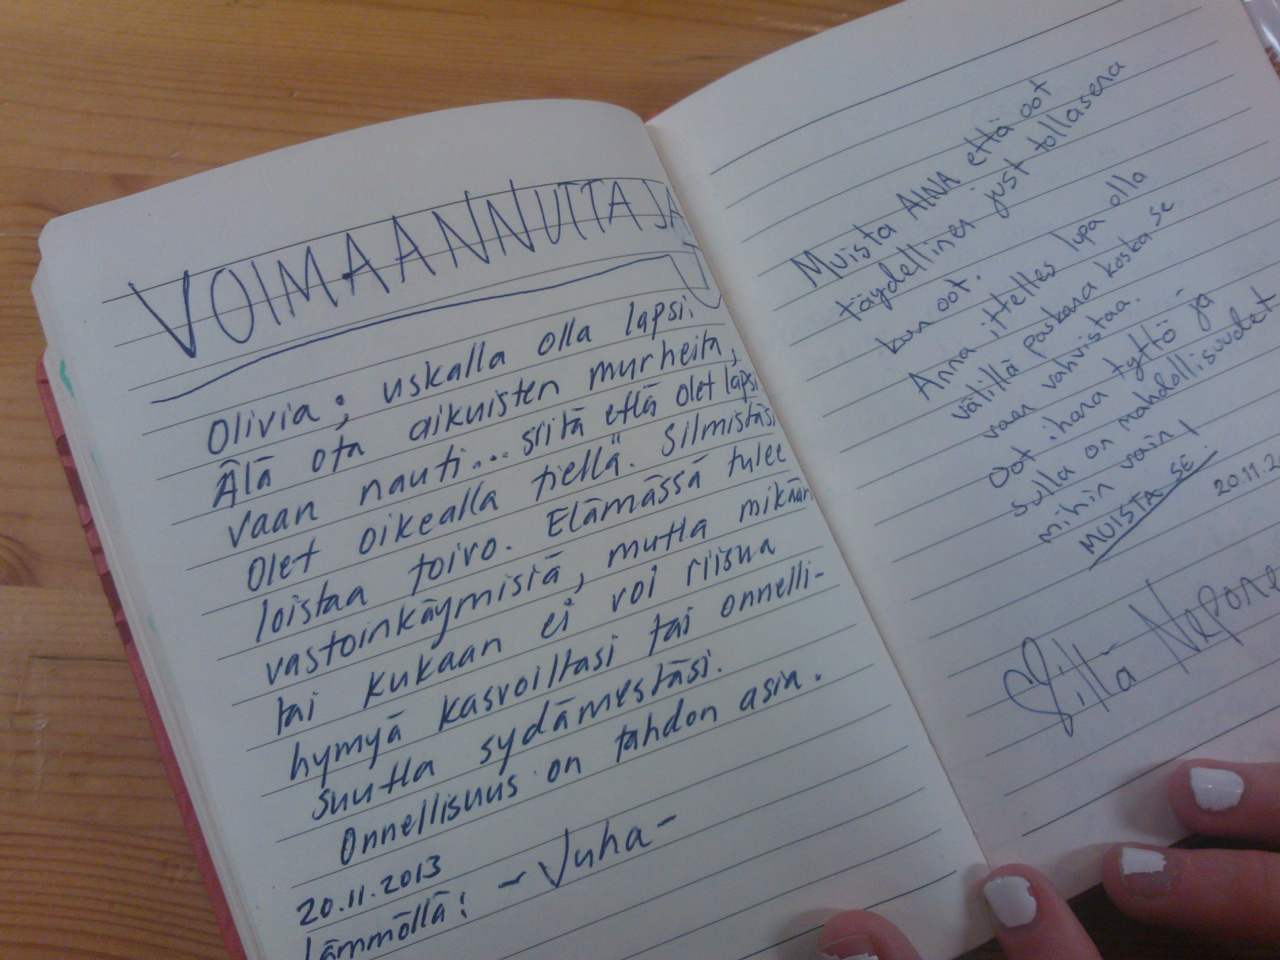 VOIMAANNUTTAJA
Olivia; uskalla olla lapsi.
Älä ota aikuisten murheita,
vaan nauti... siitä että olet lapsi
Olet oikealla tiellä. Silmistäsi
loistaa toivo. Elämässä tulee
vastoinkäymisiä, mutta mikään
tai kukaan ei voi riisua
hymyä kasvoiltasi tai onnelli-
suutta sydämestäsi.
Onnellisuus on tahdon asia.
20.11.2013
Lämmöllä: -Juha-
Muista AINA että oot
täydellinen just tollasena
kun oot.
Anna ittelles lupa olla
välillä paskana koska se
vaan vahvistaa.
Oot ihana tyttö ja
sulla on mahdollisuudet
mihin vain!
MUISTA SE.
20.11.2